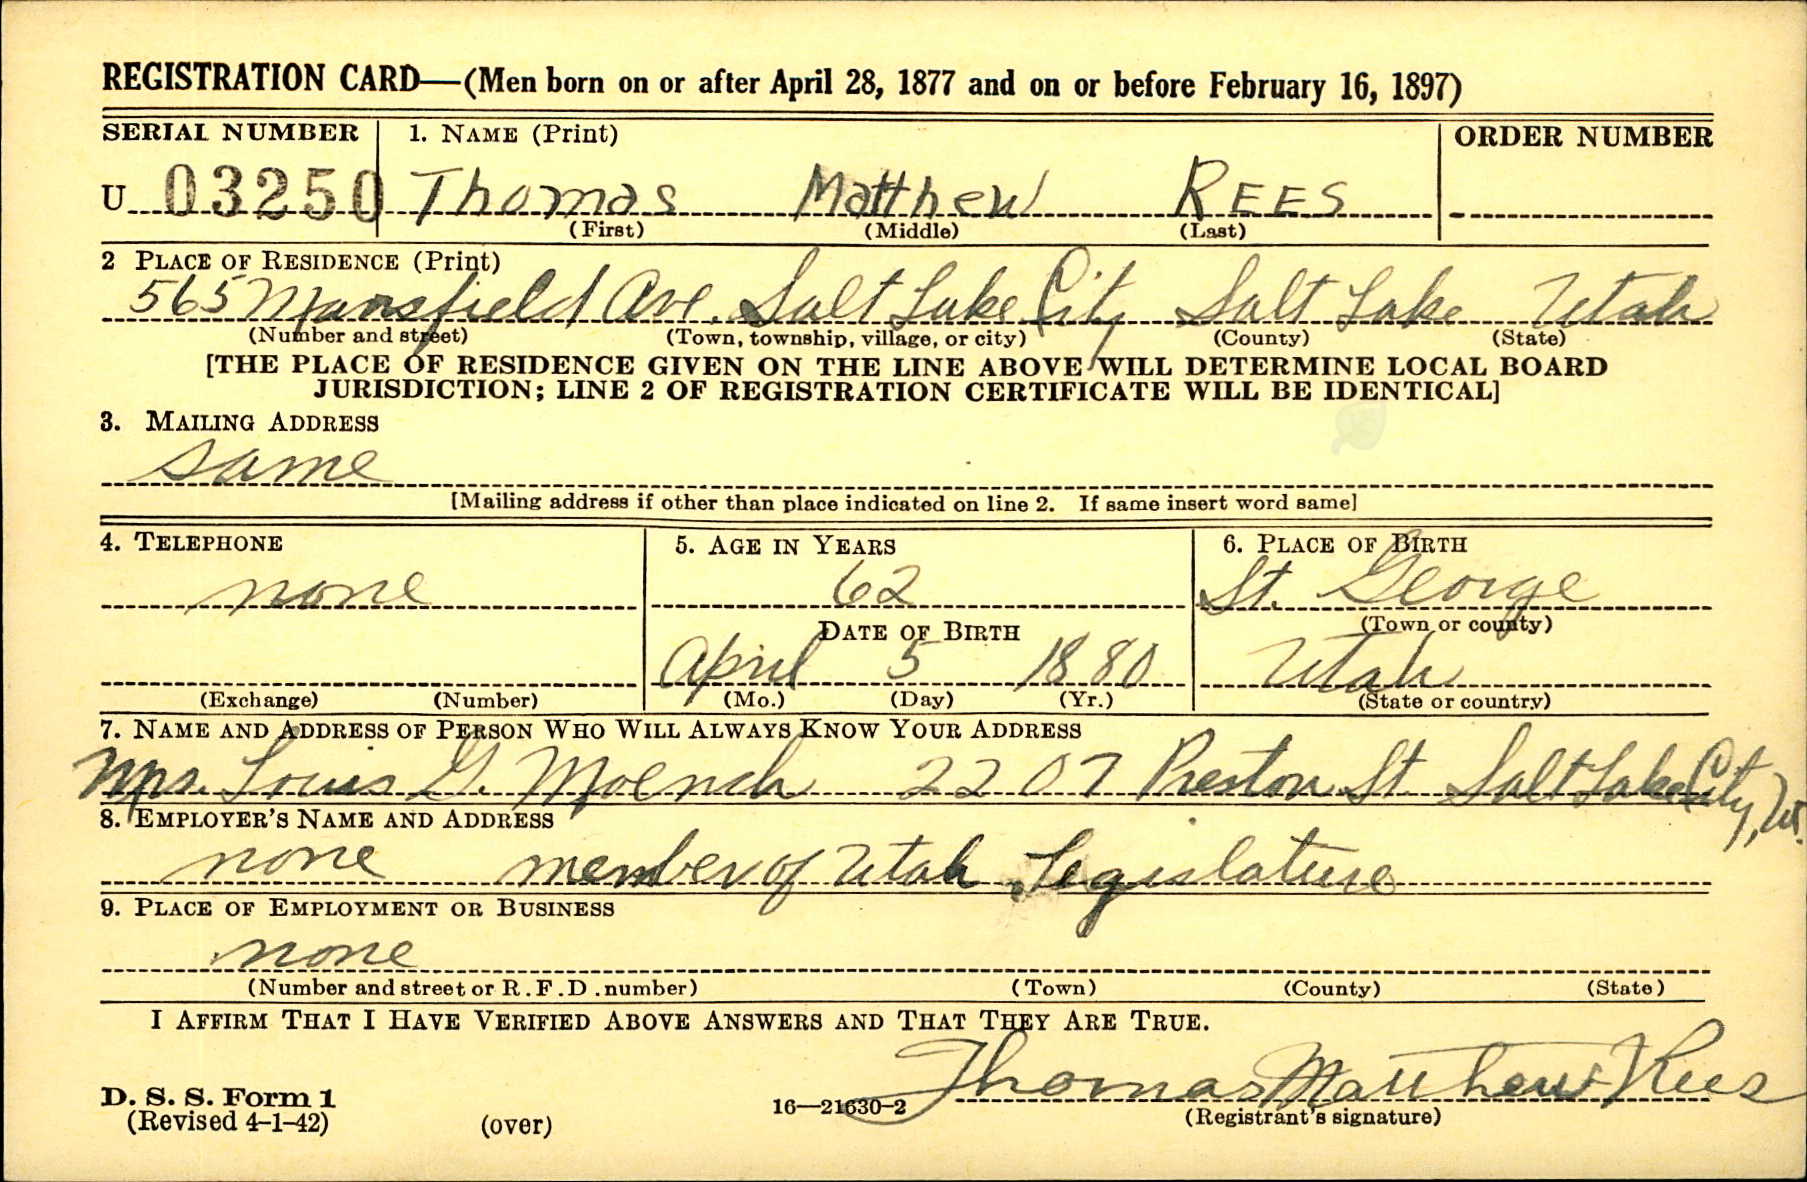 REGISTRATION CARD—(Men born on or after April 28, 1877 and on or before February 16, 1897)
SERIAL NUMBER 1. NAME (Print) ORDER NUMBER
U 03250 Thomas Matthew REES
(First) (Middle) (Last)
2 PLACE OF RESIDENCE (Print)
565 Mansfield Ave. Salt Lake City Salt Lake Utah
(Number and street) (Town, township, village, or city) (County) (State)
[THE PLACE OF RESIDENCE GIVEN ON THE LINE ABOVE WILL DETERMINE LOCAL BOARD
JURISDICTION; LINE 2 OF REGISTRATION CERTIFICATE WILL BE IDENTICAL]
3. MAILING ADDRESS
same
[Mailing address if other than place indicated on line 2. If same insert word same]
4. TELEPHONE 5. AGE IN YEARS 6. PLACE OF BIRTH
none 62 St. George
DATE OF BIRTH (Town or county)
April 5 1880 Utah
(Exchange) (Number) (Mo.) (Day) (Yr.) (State or country)
7. NAME AND ADDRESS OF PERSON WHO WILL ALWAYS KNOW YOUR ADDRESS
Mrs. Louis G. Moench 2207 Preston St Salt Lake City, Ut.
8. EMPLOYER'S NAME AND ADDRESS
none member of Utah Legislature
9. PLACE OF EMPLOYMENT OR BUSINESS
none
(Number and street or R.F.D. number) (Town) (County) (State)
I AFFIRM THAT I HAVE VERIFIED ABOVE ANSWERS AND THAT THEY ARE TRUE.
Thomas Matthew Rees
D. S. S. Form 1 16—21630-2 (Registrant's signature)
(Revised 4-1-42) (over)